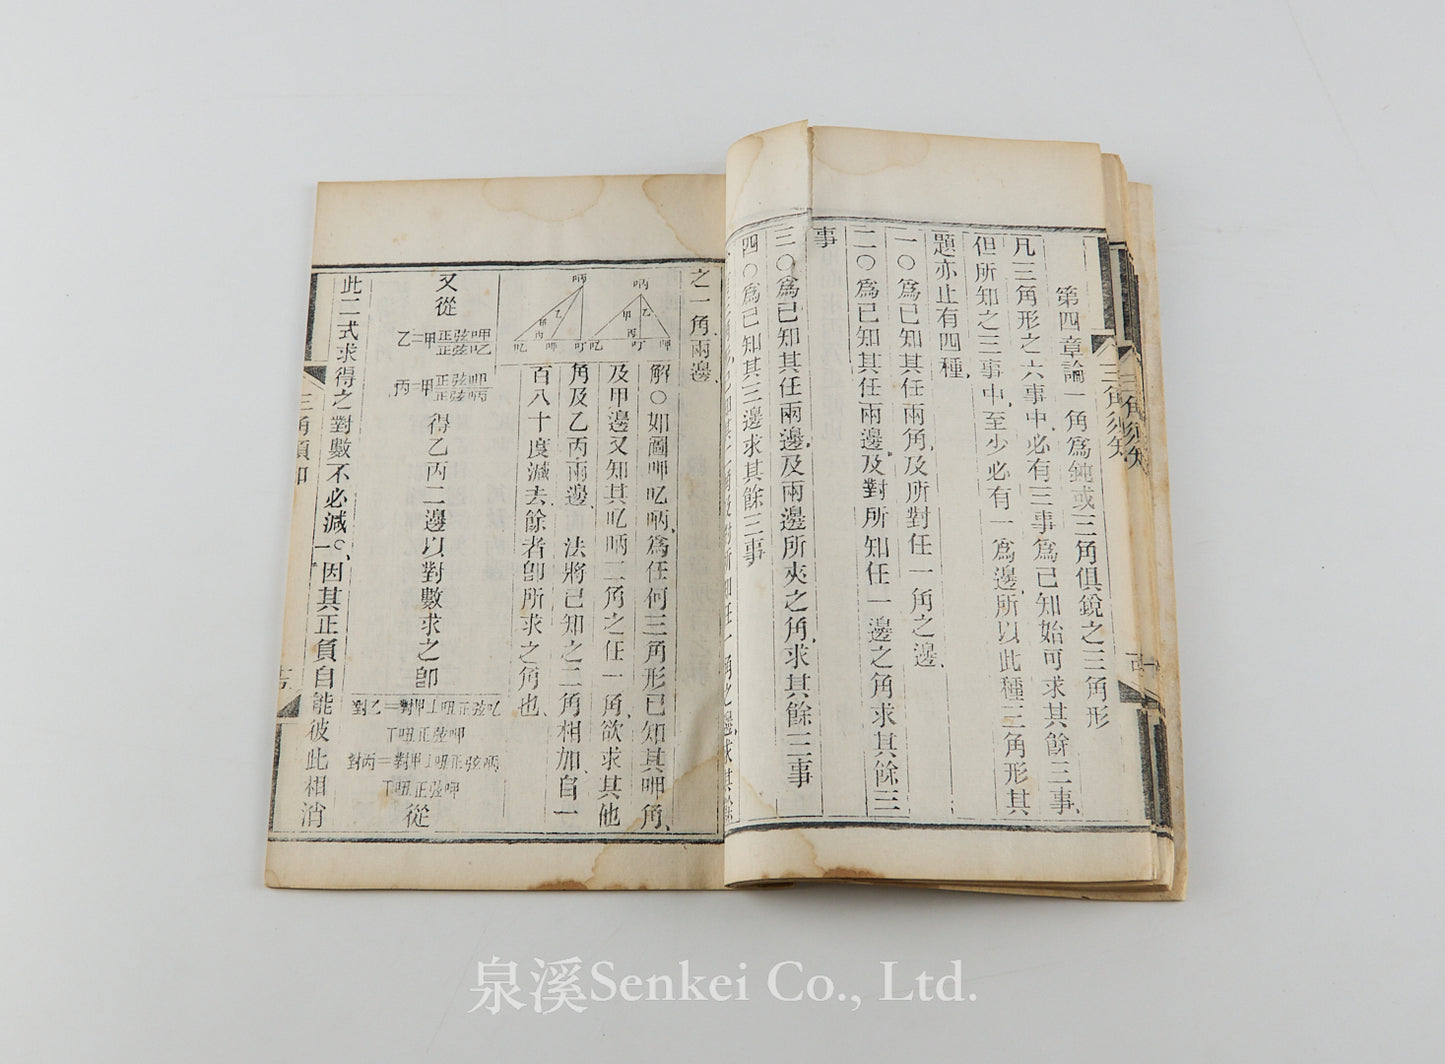 第四章論一角爲鈍或三角俱銳之三角形
凡三角形之六事中,必有三事爲已知始可求其餘三事,
但所知之三事中,至少必有一爲邊,所以此種三角形其
題亦止有四種,
一〇爲已知其任兩角,及所對任一角之邊,
二〇爲已知其任兩邊,及對所知任一邊之角求其餘三
事
三〇爲已知其任兩邊,及兩邊所夾之角,求其餘三事
四〇爲已知其三邊求其餘三事
三角須知
三角須知
之一角,兩邊,
解〇如圖呷𠮙㕫,爲任何三角形已知其呷角,
及甲邊又知其𠮙㕫二角之任一角,欲求其他
角及乙丙兩邊, 法將已知之二角相加,自一
百八十度減去,餘者卽所求之角也,
㕫
㕫
甲
乙
丙
甲
乙
丙
𠮙
呷
叮
𠮙
叮
呷
又從
乙=甲 正弦呷 正弦𠮙
丙=甲 正弦呷 正弦㕫
得乙丙二邊以對數求之卽
對乙=對甲⊥呬正弦𠮙
丅呬正弦呷
對丙=對甲⊥呬正弦㕫
丅呬正弦呷
從
此二式求得之對數不必減一〇,因其正負自能彼此相消
三角須知
泉溪Senkei Co., Ltd.